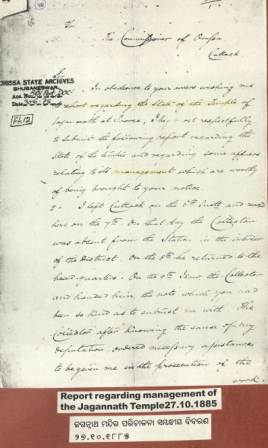 To
The Commissioner of Orissa
Cuttack
Sir
ORISSA STATE ARCHIVES
BHUBANESWAR
Acc. No.
Date
In obedience to your orders wishing me
to report regarding the State of the Temple of
Jagannath at Pooree, I have respectfully
to submit the following report regarding the
State of the temple and regarding some affairs
relating to its management which are worthy
of being brought to your notice.
2 - I left Cuttack on the 6th and
here on the 7th. On that day the Collector
was absent from the Station in the interior
of the District. On the 8th he returned to the
head-quarters. On the 9th I saw the Collector
and handed him the note which you had
been so kind as to entrust me with. The
Collector after knowing the cause of my
deputation, ordered necessary assistance
to be given me in the prosecution of the
work.
Report regarding management of
the Jagannath Temple27.10.1885
ଜଗନ୍ନାଥ ମନ୍ଦିର ପରିଚାଳନା ସମ୍ବନ୍ଧୀୟ ବିବରଣୀ
୨୭.୧୦.୧୮୮୫